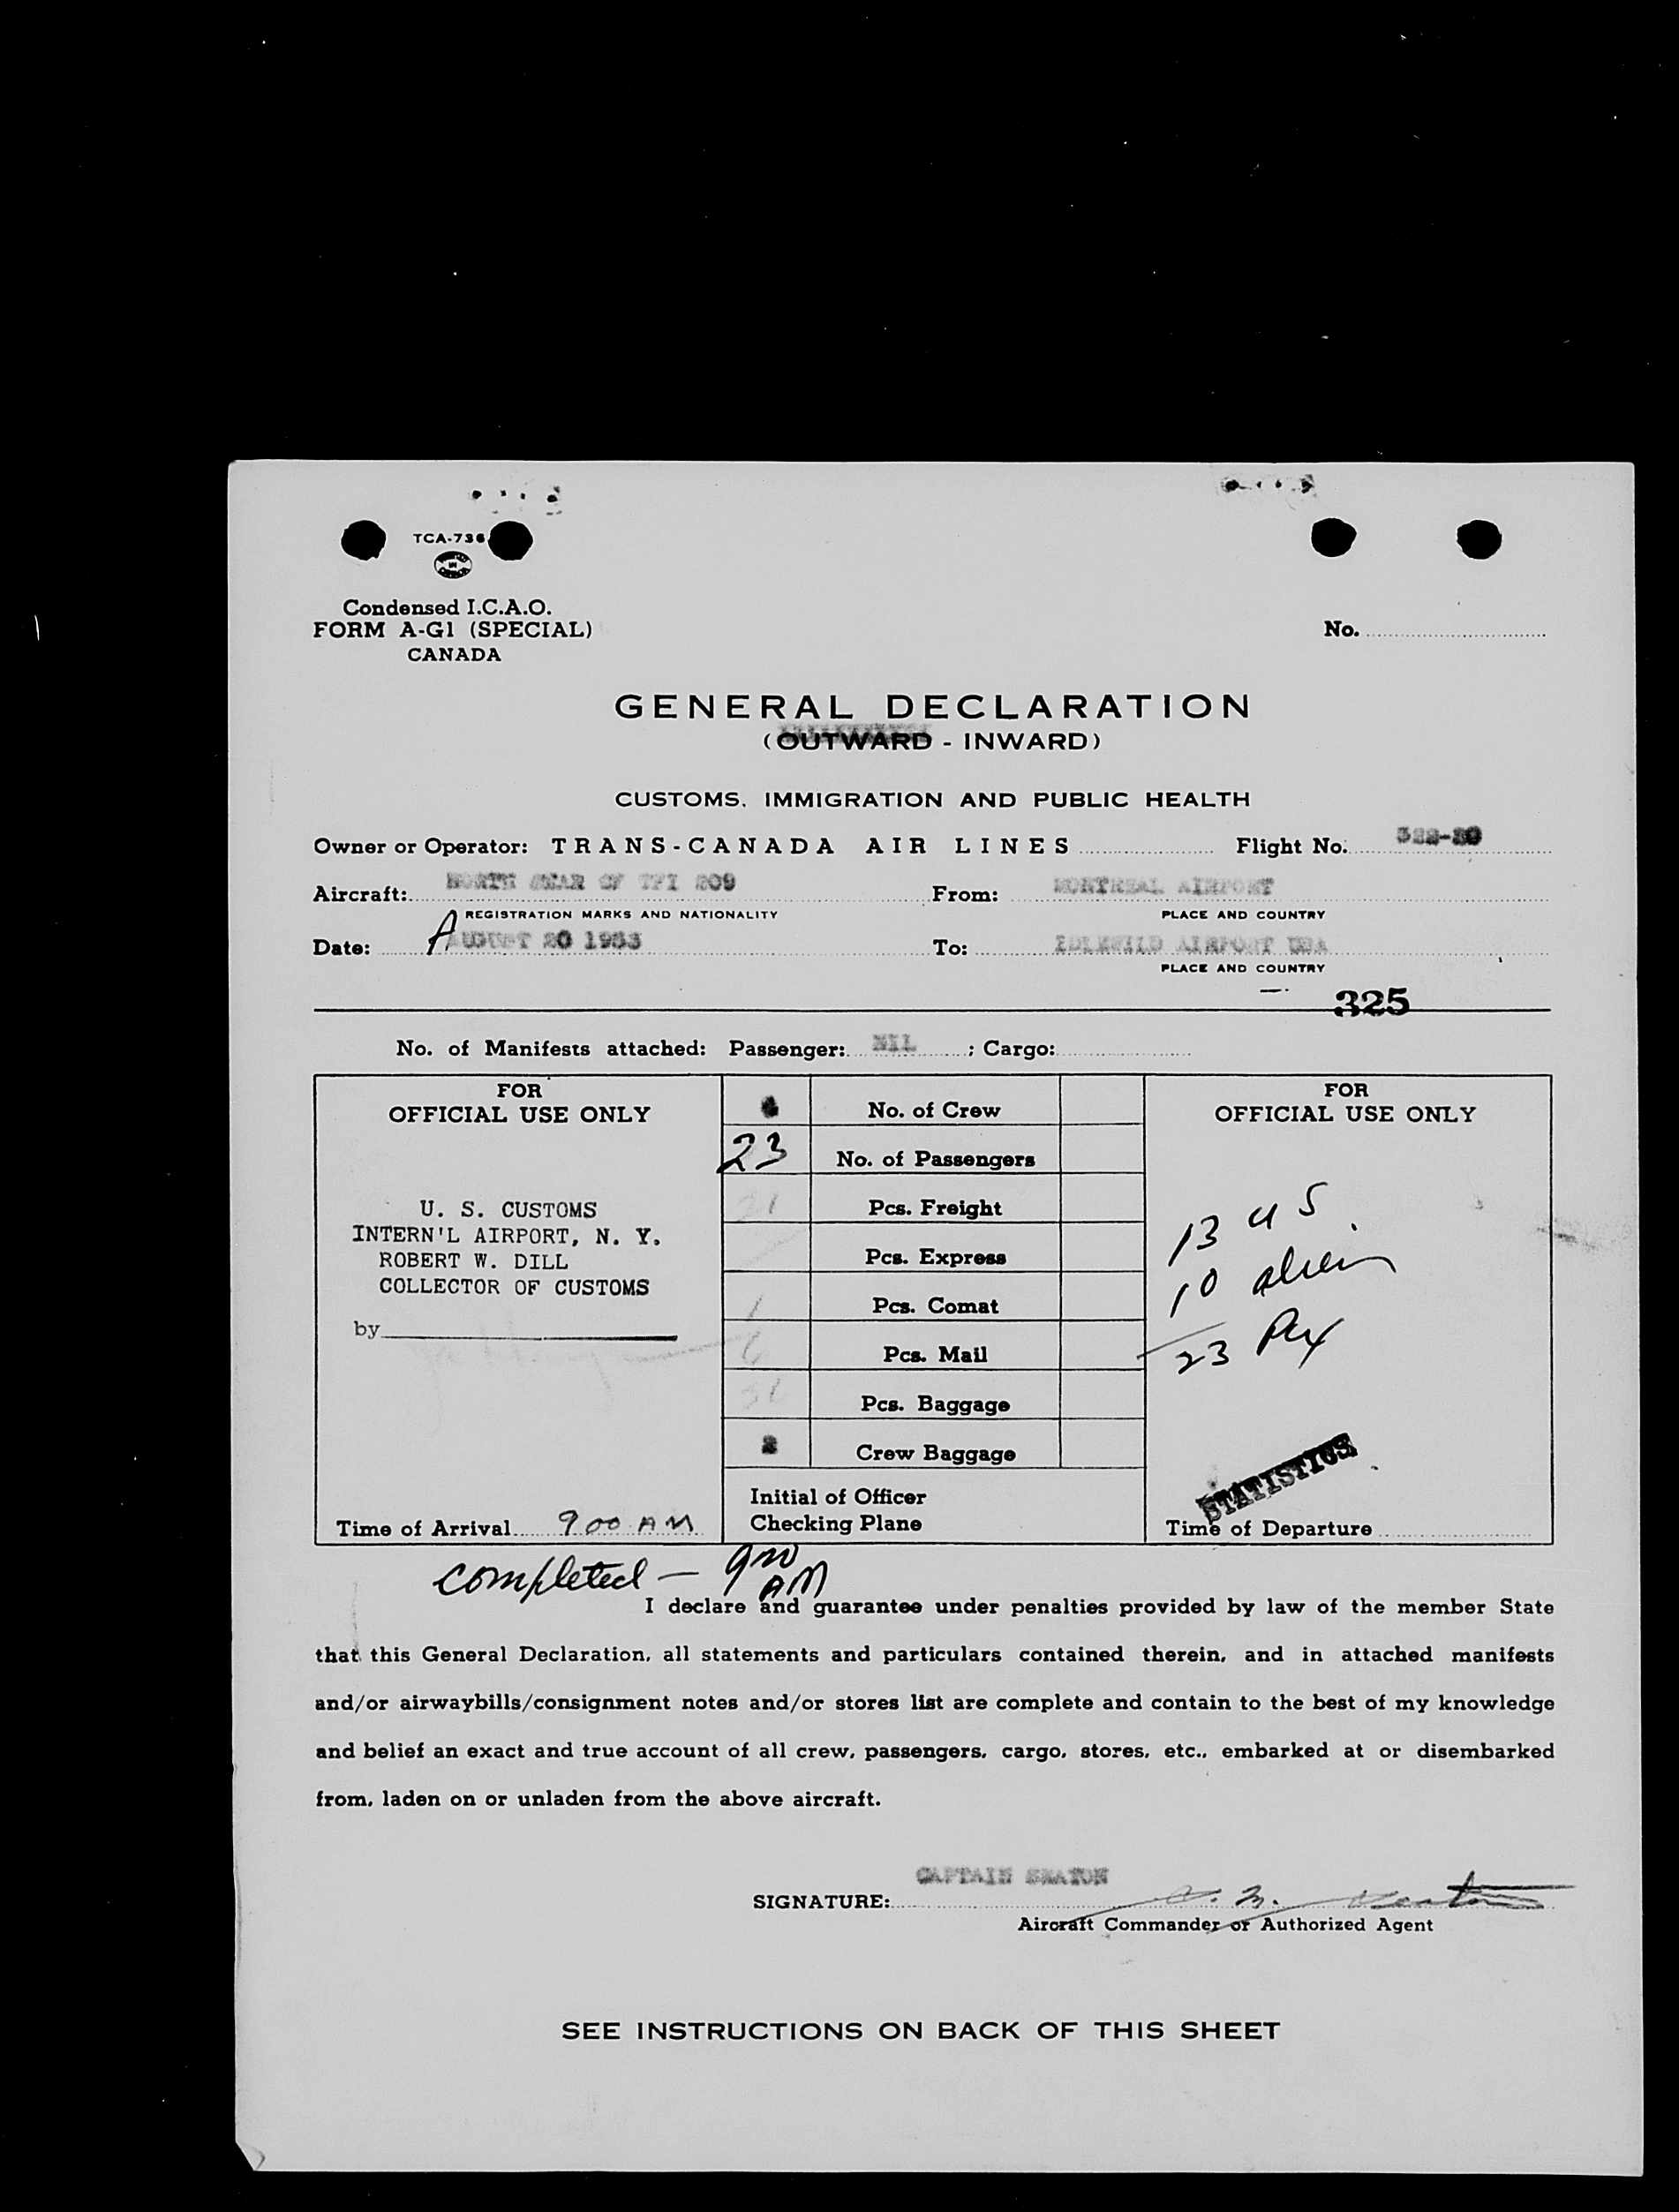 TCA-736
Condensed I.C.A.O.
FORM A-G1 (SPECIAL)
CANADA
No.
GENERAL DECLARATION
(OUTWARD - INWARD)
CUSTOMS, IMMIGRATION AND PUBLIC HEALTH
Owner or Operator: TRANS-CANADA AIR LINES Flight No.
Aircraft: NORTH STAR CF TFI 209 From: MONTREAL AIRPORT
REGISTRATION MARKS AND NATIONALITY PLACE AND COUNTRY
Date: AUGUST 20 1953 To: IDLEWILD AIRPORT USA
PLACE AND COUNTRY
325
No. of Manifests attached: Passenger: NIL ; Cargo:
FOR
OFFICIAL USE ONLY
U. S. CUSTOMS
INTERN'L AIRPORT, N. Y.
ROBERT W. DILL
COLLECTOR OF CUSTOMS
by
Time of Arrival 9 00 AM
No. of Crew
23 No. of Passengers
21 Pcs. Freight
Pcs. Express
1 Pcs. Comat
6 Pcs. Mail
Pcs. Baggage
Crew Baggage
Initial of Officer
Checking Plane
FOR
OFFICIAL USE ONLY
13 US.
10 alien
23 Pax
STATISTICS
Time of Departure
completed -
AM
I declare and guarantee under penalties provided by law of the member State
that this General Declaration, all statements and particulars contained therein, and in attached manifests
and/or airwaybills/consignment notes and/or stores list are complete and contain to the best of my knowledge
and belief an exact and true account of all crew, passengers, cargo, stores, etc., embarked at or disembarked
from, laden on or unladen from the above aircraft.
CAPTAIN SEATON
SIGNATURE:
Aircraft Commander or Authorized Agent
SEE INSTRUCTIONS ON BACK OF THIS SHEET